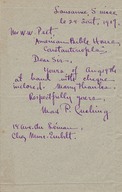 Lausanne Suisse
le 24 Aout. 1909.
Mr W.W. Peet,
American Bible House,
Constantinople,
Dear Sir:-
Yours of Aug 9th
at hand with cheque
inclosed. Many thanks.
Respectfully yours,
Mrs P.
Avenue
Chez Mme